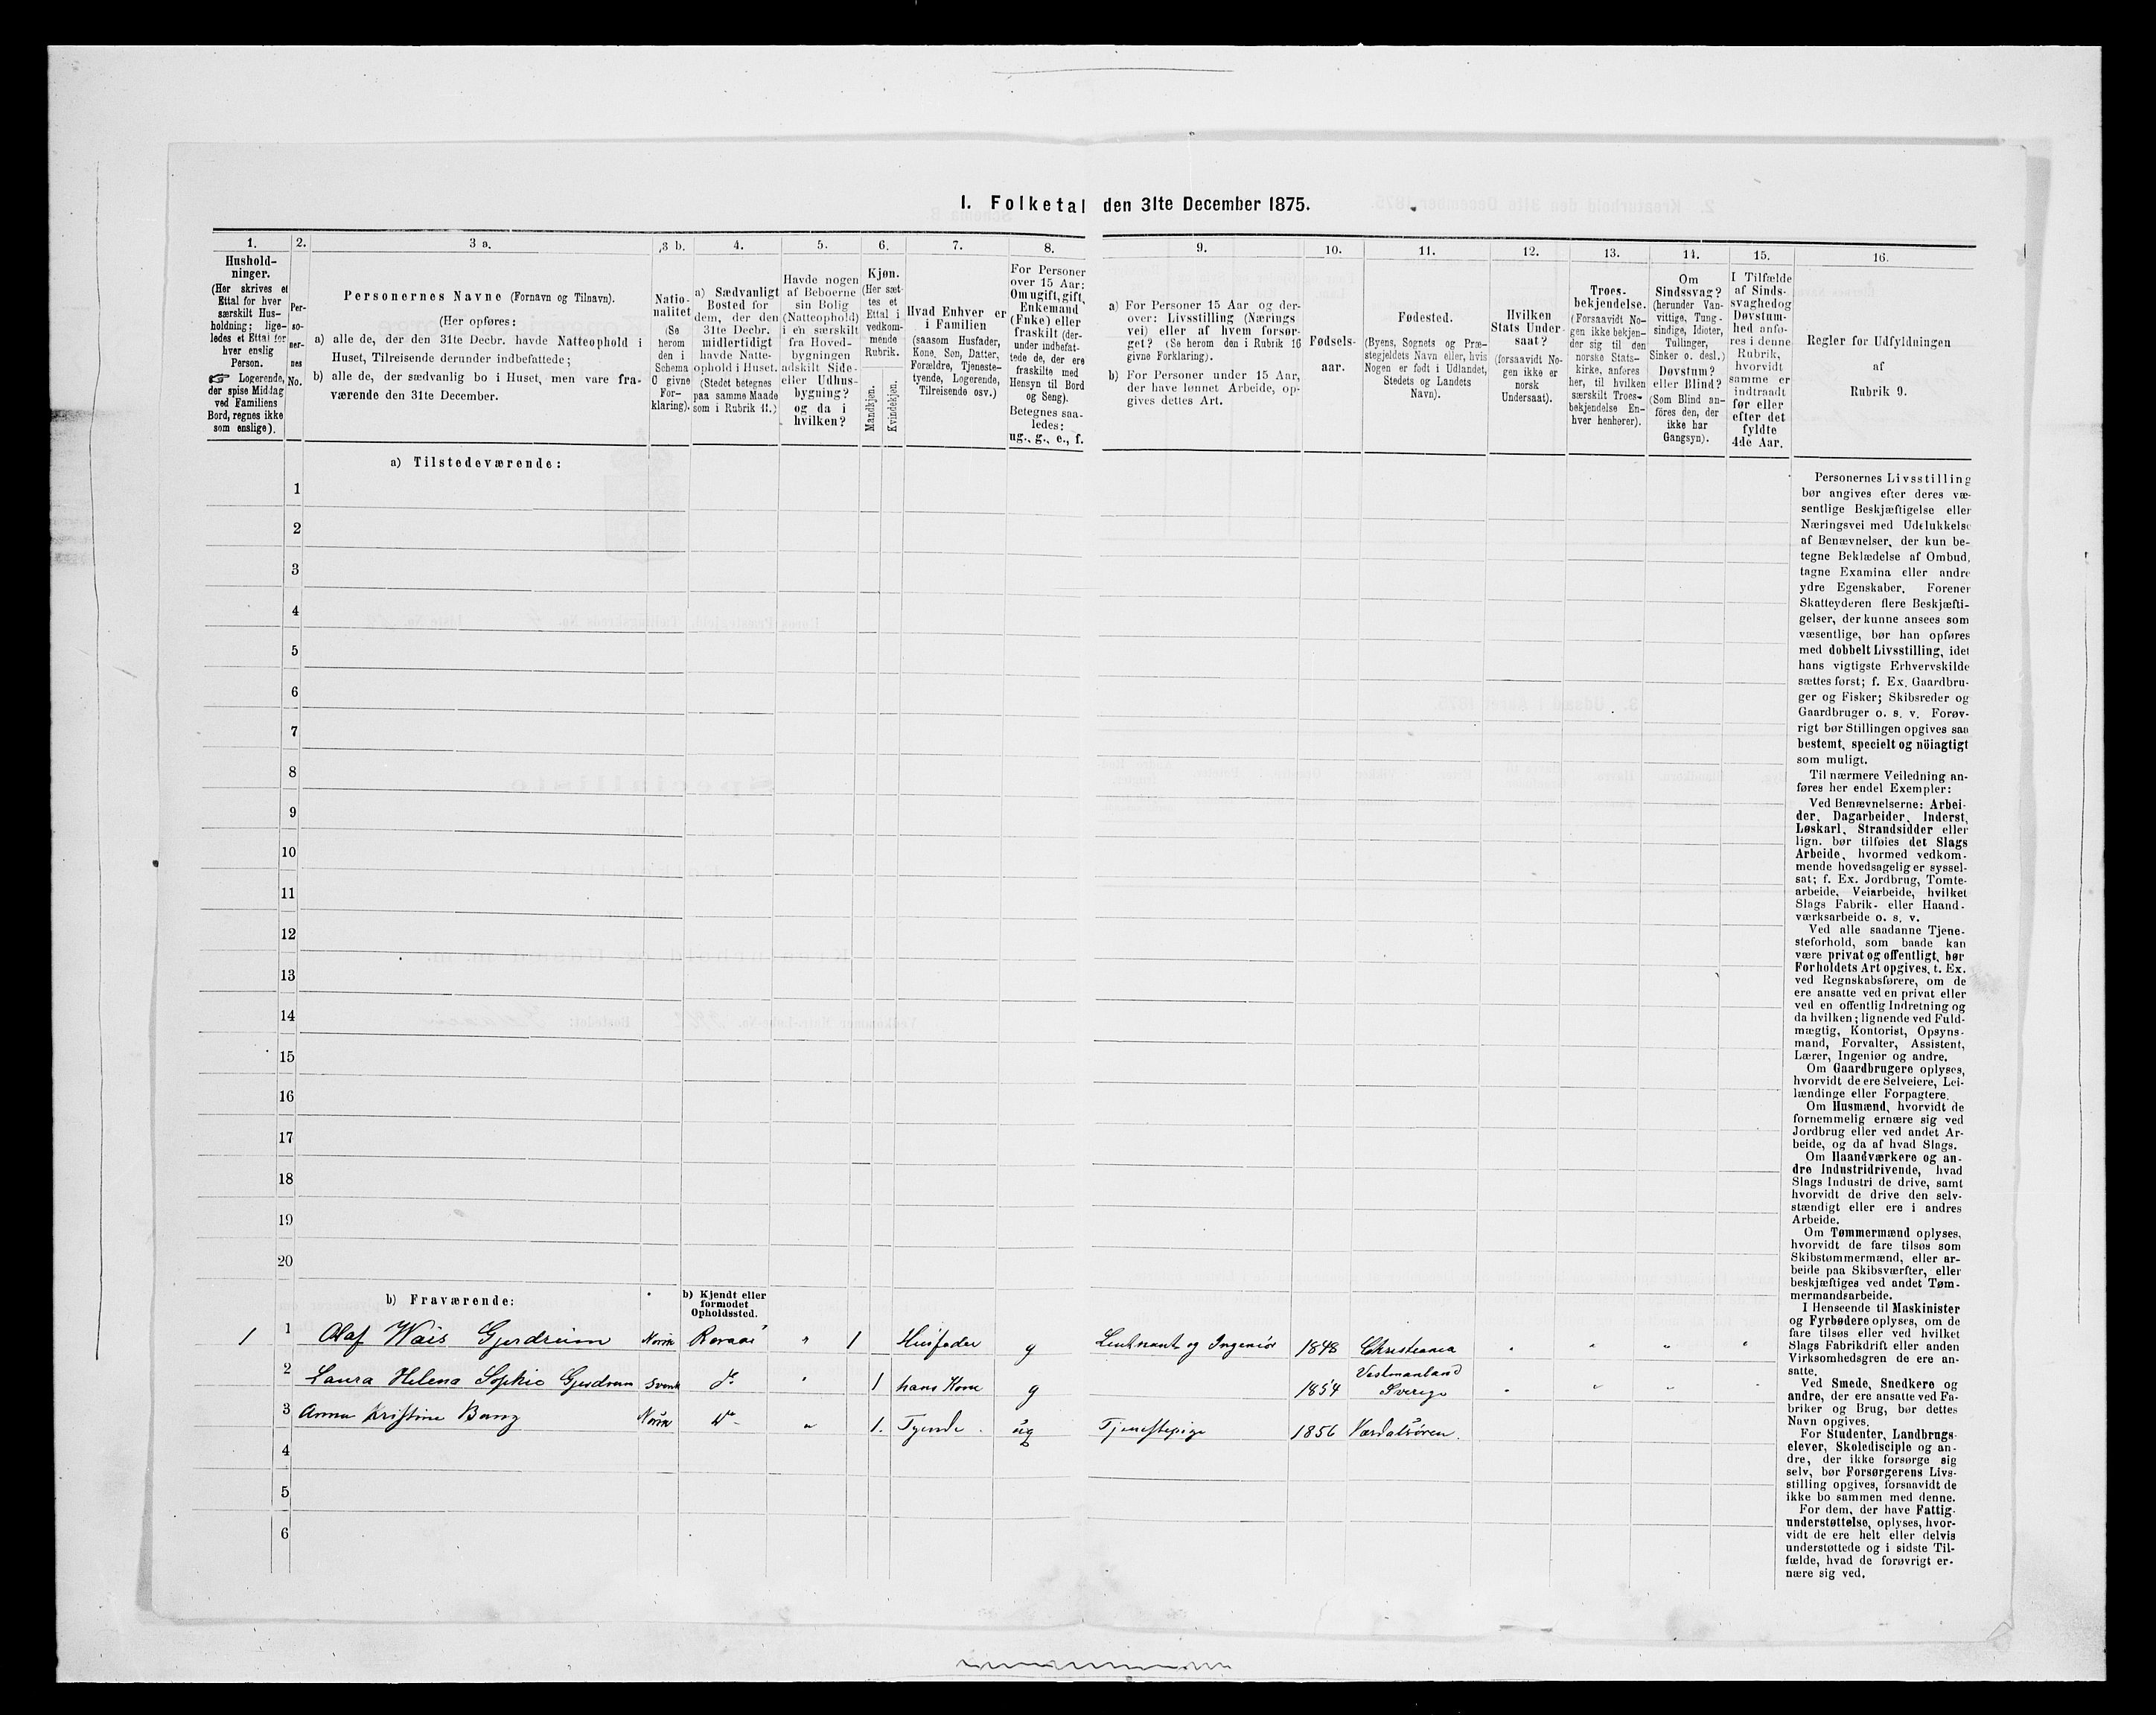 1. Folketal den 31te December 1875.
1.
Hushold-
ninger.
(Her skrives et
Ettal for hver
særskilt Hus-
holdning; lige-
ledes et Ettal for
hver enslig
Person.
☞ Logerende,
der spise Middag
ved Familiens
Bord, regnes ikke
som enslige).
2.
Per-
so-
ner-
nes
No.
3 a.
Personernes Navne (Fornavn og Tilnavn).
(Her opføres:
a) alle de, der den 31te Decbr. havde Natteophold i
Huset, Tilreisende derunder indbefattede;
b) alle de, der sædvanlig bo i Huset, men vare fra-
værende den 31te December.
3 b.
Natio-
nalitet
(Se
herom
den i
Schema
C givne
For-
klaring).
4.
a) Sædvanligt
Bosted for
dem, der den
31te Decbr.
midlertidigt
havde Natte-
ophold i Huset.
(Stedet betegnes
paa samme Maade
som i Rubrik 11.)
5.
Havde nogen
af Beboerne
sin Bolig
(Natteophold)
i en særskilt
fra Hoved-
bygningen
adskilt Side-
eller Udhus-
bygning?
og da i
hvilken?
6.
Kjøn.
(Her sæt-
tes et
Ettal i
vedkom-
mende
Rubrik.
Mandkjøn.
Kvindekjøn.
7.
Hvad Enhver er
i Familien
(saasom Husfader,
Kone, Søn, Datter,
Forældre, Tjeneste-
tyende, Logerende,
Tilreisende osv.)
8.
For Personer
over 15 Aar:
Om ugift, gift,
Enkemand
(Enke) eller
fraskilt (der-
under indbefat-
tede de, der ere
fraskilte med
Hensyn til Bord
og Seng).
Betegnes saa-
ledes:
ug., g., e., f.
9.
a) For Personer 15 Aar og der-
over: Livsstilling (Nærings
vei) eller af hvem forsør-
get? (Se herom den i Rubrik 16
givne Forklaring).
b) For Personer under 15 Aar,
der have lønnet Arbeide, op-
gives dettes Art.
10.
Fødsels-
aar.
11.
Fødested.
(Byens, Sognets og Præ-
stegjeldets Navn eller, hvis
Nogen er født i Udlandet,
Stedets og Landets
Navn).
12.
Hvilken
Stats Under-
saat?
(forsaavidt No-
gen ikke er
norsk
Undersaat).
13.
Troes-
bekjendelse.
(Forsaavidt No-
gen ikke bekjen-
der sig til den
norske Stats-
kirke, anføres
her, til hvilken
særskilt Troes-
bekjendelse En-
hver henhører).
14.
Om
Sindssvag?
(herunder Van-
vittige, Tung-
sindige, Idioter,
Tullinger,
Sinker o. desl.)
Døvstum?
eller Blind?
(Som Blind an-
føres den, der
ikke har
Gangsyn).
15.
I Tilfælde
af Sinds-
svaghed og
Døvstum-
hed anfø-
res i denne
Rubrik,
hvorvidt
samme er
indtraadt
før eller
efter det
fyldte
4de Aar.
16.
Regler for Udfyldningen
af
Rubrik 9.
a) Tilstedeværende:
1
2
3
4
5
6
7
8
9
10
11
12
13
14
15
16
17
18
19
20
b) Fraværende:
b) Kjendt eller
formodet
Opholdssted.
1 1 Olaf Wais Gjerdrum Norsk Roraas " 1 Husfader g Lieutnant og Ingeniør 1848 Christiania
2 Laura Helena Sophie Gjerdrum Svensk do " 1 hans Kone g 1854 Vestmanland Sverige
3 Anna Kristine Norsk do " 1. Tyende ug Tjenestepige 1856 Værdalsøren.
4
5
6
Personernes Livsstilling
bør angives efter deres væ-
sentlige Beskjæftigelse eller
Næringsvei med Udelukkelse
af Benævnelser, der kun be-
tegne Beklædelse af Ombud,
tagne Examina eller andre
ydre Egenskaber. Forener
Skatteyderen flere Beskjæfti-
gelser, der kunne ansees som
væsentlige, bør han opføres
med dobbelt Livsstilling, idet
hans vigtigste Erhvervskilde
sættes først; f. Ex. Gaardbru-
ger og Fisker; Skibsreder og
Gaardbruger o. s. v. Forøv-
rigt bør Stillingen opgives saa
bestemt, specielt og nöiagtigt
som muligt.
Til nærmere Veiledning an-
føres her endel Exempler:
Ved Benævnelserne: Arbei-
der, Dagarbeider, Inderst,
Løskarl, Strandsidder eller
lign. bør tilføies det Slags
Arbeide, hvormed vedkom-
mende hovedsagelig er syssel-
sat; f. Ex. Jordbrug, Tomte-
arbeide, Veiarbeide, hvilket
Slags Fabrik- eller Haand-
værksarbeide o. s. v.
Ved alle saadanne Tjene-
steforhold, som baade kan
være privat og offentligt, bør
Forholdets Art opgives, t. Ex.
ved Regnskabsførere, om de
ere ansatte ved en privat eller
ved en offentlig Indretning og
da hvilken; lignende ved Fuld-
mægtig, Kontorist, Opsyns-
mand, Forvalter, Assistent,
Lærer, Ingeniør og andre.
Om Gaardbrugere oplyses,
hvorvidt de ere Selveiere, Lei-
lændinge eller Forpagtere.
Om Husmænd, hvorvidt de
fornemmelig ernære sig ved
Jordbrug eller ved andet Ar-
beide, og da af hvad Slags.
Om Haandværkere og an-
dre Industridrivende, hvad
Slags Industri de drive, samt
hvorvidt de drive den selv-
stændigt eller ere i andres
Arbeide.
Om Tømmermænd oplyses,
hvorvidt de fare tilsøs som
Skibstømmermænd, eller ar-
beide paa Skibsværfter, eller
beskjæftiges ved andet Tøm-
mermandsarbeide.
I Henseende til Maskinister
og Fyrbødere oplyses, om de
fare tilsøs eller ved hvilket
Slags Fabrikdrift eller anden
Virksomhedsgren de ere an-
satte.
Ved Smede, Snedkere og
andre, der ere ansatte ved Fa-
briker og Brug, bør dettes
Navn opgives.
For Studenter, Landbrugs-
elever, Skoledisciple og an-
dre, der ikke forsørge sig
selv, bør Forsørgerens Livs-
stilling opgives, forsaavidt de
ikke bo sammen med denne.
For dem, der have Fattig-
understøttelse, oplyses, hvor-
vidt de ere helt eller delvis
understøttede og i sidste Til-
fælde, hvad de forøvrigt er-
nære sig ved.